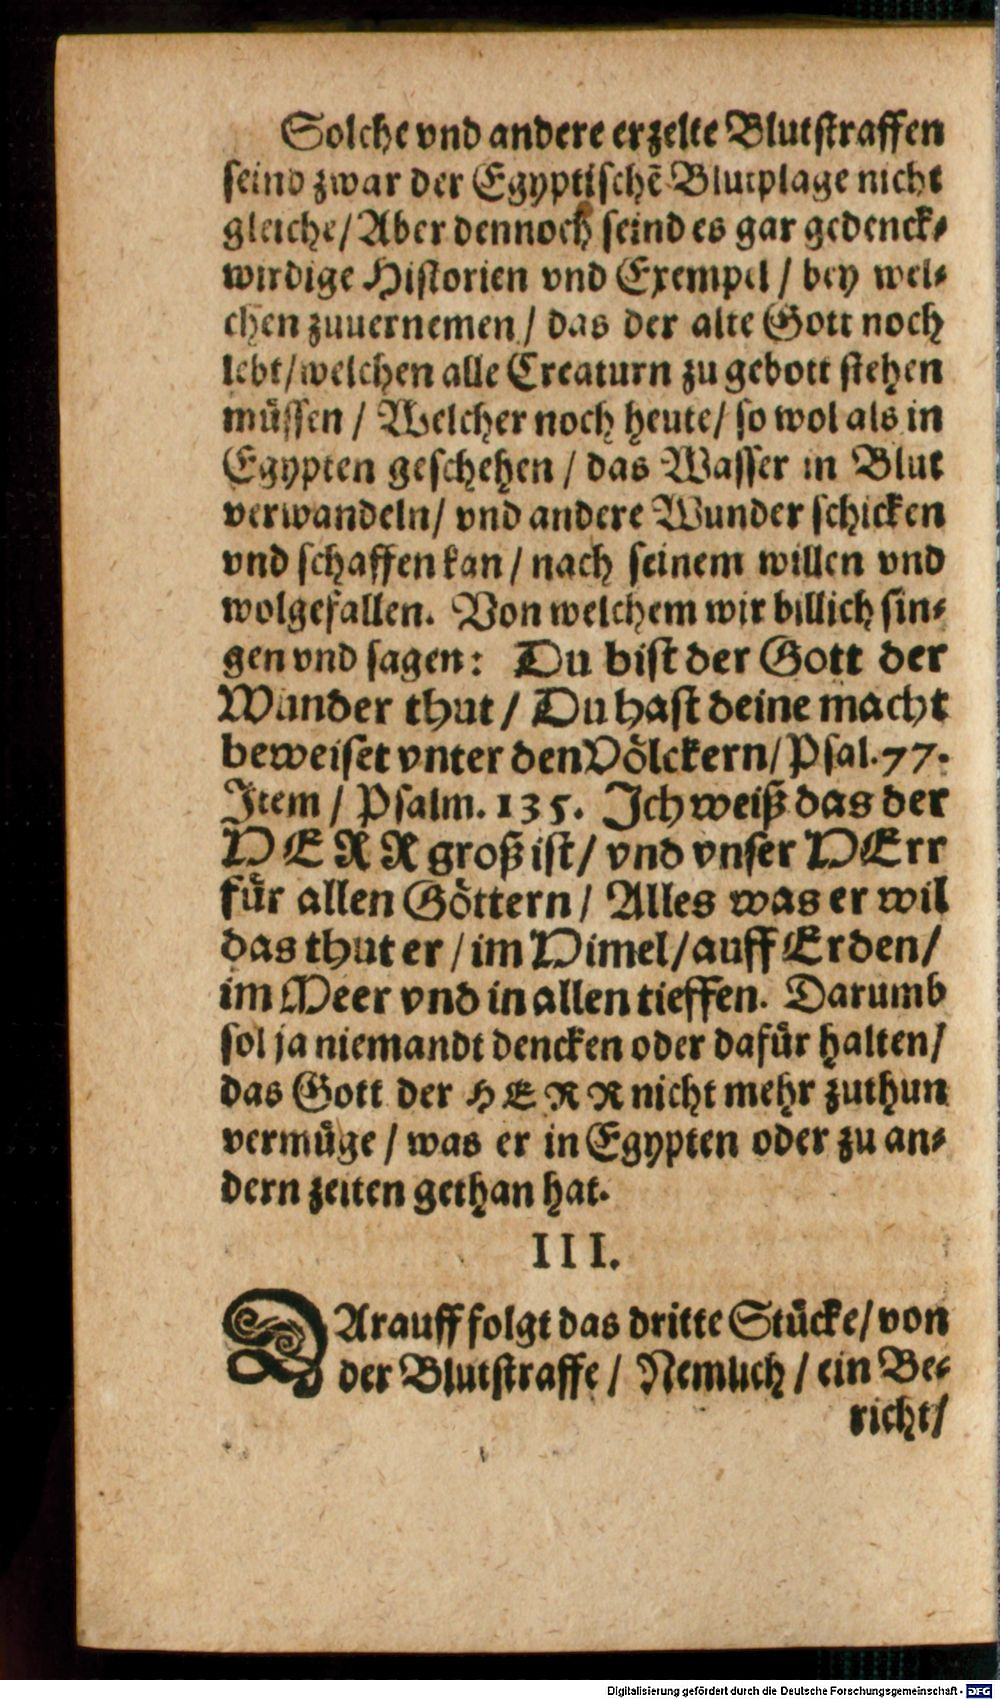 Solche vnd andere erzelte Blutstraffen
seind zwar der Egyptischẽ Blutplage nicht
gleiche/ Aber dennoch seind es gar gedenck-
wirdige Historien vnd Exempel / bey wel-
chen zuuernemen / das der alte Gott noch
lebt/ welchen alle Creaturn zu gebott stehen
müssen / Welcher noch heute/ so wol als in
Egypten geschehen / das Wasser in Blut
verwandeln/ vnd andere Wunder schicken
vnd schaffen kan / nach seinem willen vnd
wolgefallen. Von welchem wir billich sin-
gen vnd sagen: Du bist der Gott der
Wunder thut / Du hast deine macht
beweiset vnter den Völckern/ Psal. 77.
Item / Psalm. 135. Ich weiß das der
HERR groß ist/ vnd vnser HErr
für allen Göttern / Alles was er wil
das thut er / im Himel/ auff Erden/
im Meer vnd in allen tieffen. Darumb
sol ja niemandt dencken oder dafür halten/
das Gott der HERR nicht mehr zuthun
vermüge / was er in Egypten oder zu an-
dern zeiten gethan hat.
III.
DArauff folgt das dritte Stücke/ von
der Blutstraffe / Nemlich / ein Be-
richt/
Digitalisierung gefördert durch die Deutsche Forschungsgemeinschaft - DFG